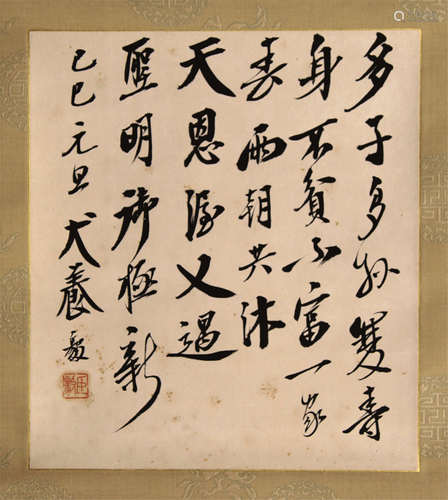 多子多孫雙壽
身不貧不富一家
春兩朝共沐
天恩渥又遇
聖明御極新
己巳元旦犬養毅